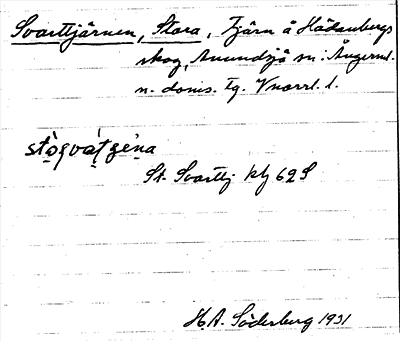 Svarttjärnen, Stora, Tjärn å Hädanbergs
skog, Anundsjö sn: Ångerml.
n. doms. Tg. Vnorrl. l.
stò̩gvát̩ɡè̩na
St. Svarttj. kbj 62 S
H.A. Söderberg 1931